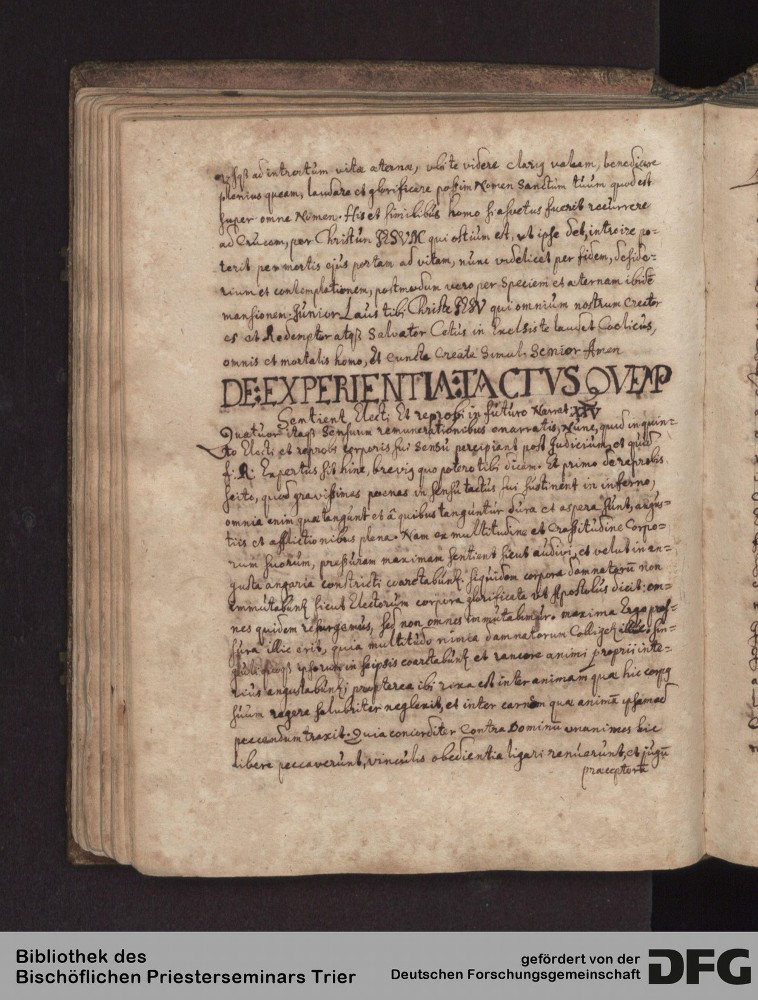 usqß ad introitum vitæ æternæ, ubi te videre clariq valeam, benedicere
plenius queam, laudare et glorificare possim Nomen Sanctum tuum quod est
super omne Nomen. His et similibus homo si assuetus fuerit recurrere
ad Crucem, per Christum IESVM qui ostium est, ut ipse det, introire po-
terit per mortis ejus portam ad vitam, nunc videlicet per fidem, deside-
rium et contemplationem, postmodum vero per Speciem et æternam ibidē
mansionem. Junior Laus tibi Christe IESV qui omnium nostrum Creator
es et Redemptor atqß Salvator Cetus in Excelsis te laudet Coelicus,
omnis et mortalis homo, Et cuncta Creata Simul. Senior Amen
DE: EXPERIENTIA: TACTVS QVEMP
Sentient Electi Et reprobi in futuro Narrat XXV
Quatuor itaqß Sensuum remunerationibus enarratis, Nunc, quid in quin-
to Electi et reprobi corporis sui Sensu percipient post Judicium, et quid
f. R. Expertus sit hinc, breviq quo potero tibi dicam. Et primo de reprobis
scito, quod gravissimas poenas in sensu tactus sui sustinent in inferno,
omnia enim quæ tangunt et â quibus tanguntur dura et aspera sunt, angus-
tiis et afflictionibus plena. Nam ex multitudine et Crassitudine Corpo-
rum suorum, pressuram maximam sentient sicut audivi, et velut in an-
gusta angaria constricti coarctabunt, siquidem corpora damnatorū non
immutabunt sicut Electorum corpora glorificata ut Apostolus dicit: om-
nes quidem resurgemus, sed non omnes immutabimur. maxima Ergo pres-
sura illic erit, quia multitudo nimia damnatorum Colliget illic. sin-
ipsorum in seipsis coarctabunt et rancore animi proprii inte-
rius angustabunt; propterea ibi rixa est inter animam quæ hic corpq
suum regere salubriter neglexit, et inter carnem quæ animā ipsam ad
peccandum traxit. Quia concorditer Contra Dominū unanimes hic
libere peccaverunt, vinculis obedientia ligari renuerunt, et jugū
præceptorū
Bibliothek des
Bischöflichen Priesterseminars Trier
gefördert von der
Deutschen Forschungsgemeinschaft
DFG